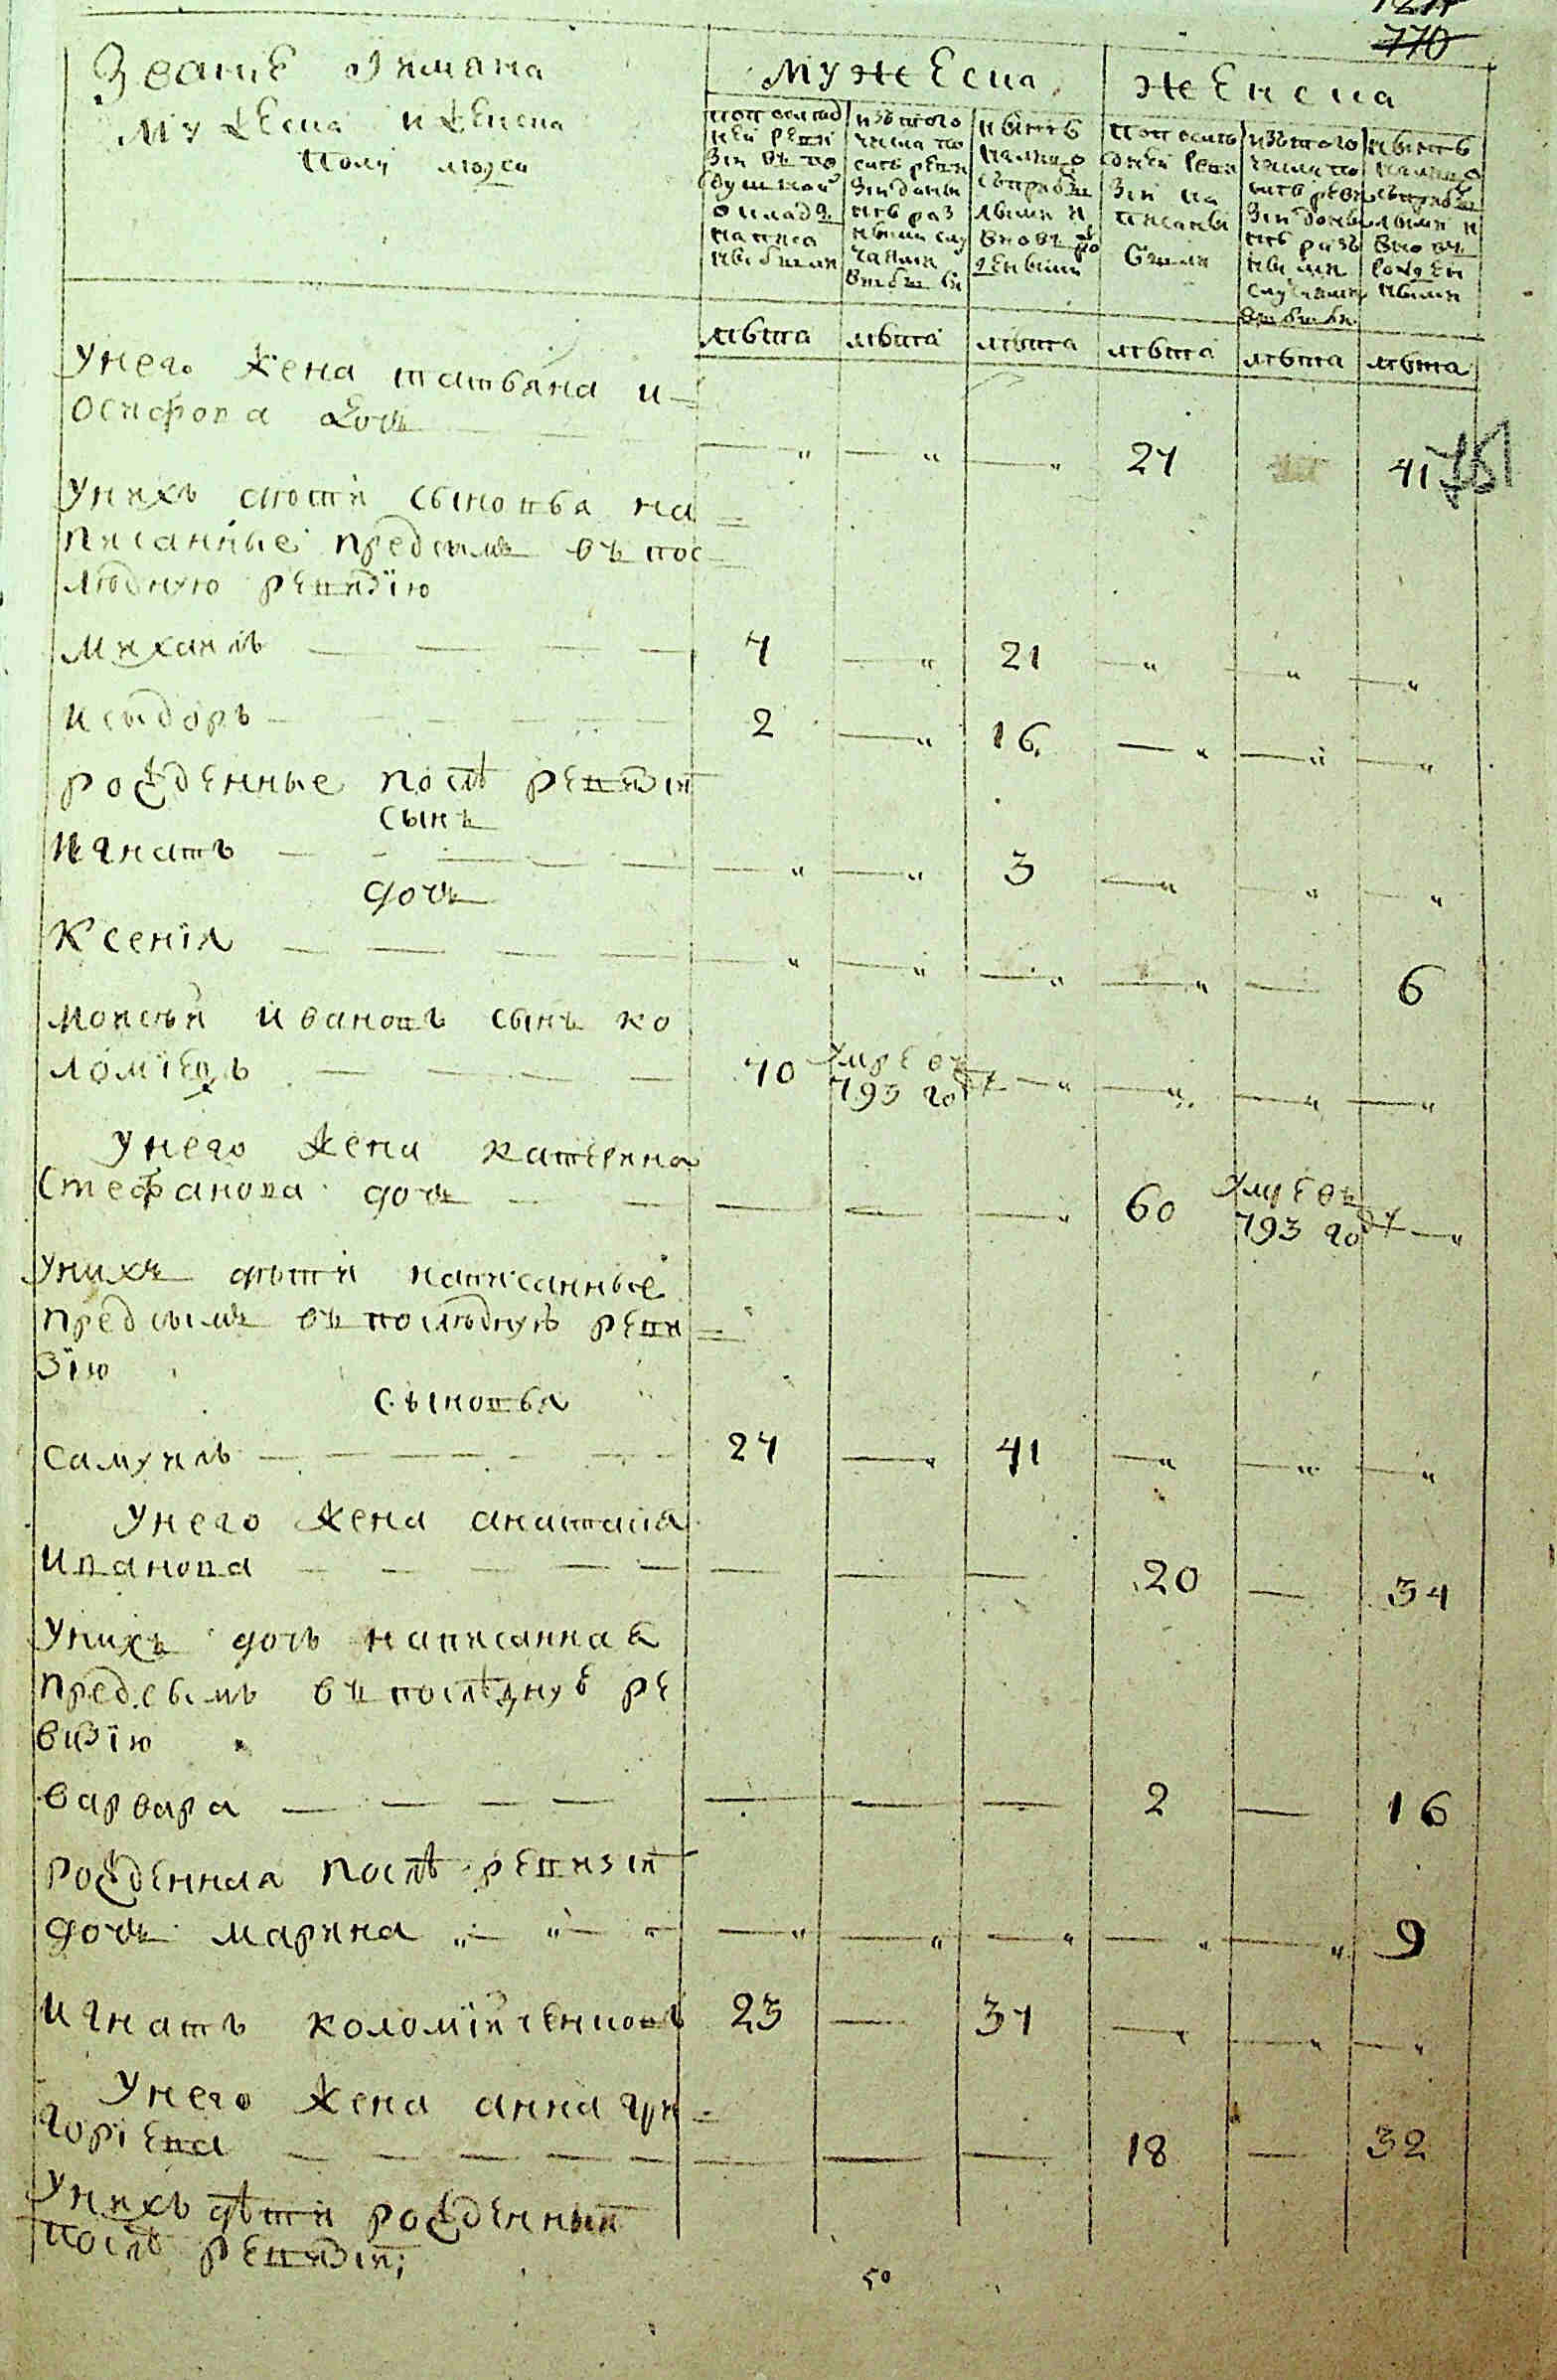 770
Званіе Iимана
мужеска иженска
полу люди
мужеска
женска
попослед
ней реви
зіи въ по
душной
окладъ
написа
ны были
изтого
числа по
слѣ реви
зіи до ны
нѣ раз
ными слу
чаями
выбыли
нынѣ
налицо
съприбы
лыми и
вновь ро
жденными
попослѣ
дней реви
зіи на
писаны
были
изътого
числа по
слѣ реви
зіи доны
нѣ разъ
ными
случаями
выбыли
нынѣ
налицо
съприбы
лыми и
вновъ
рожден
ными
лѣта лѣта лѣта лѣта лѣта лѣта
Унего жена татьяна и
осифова дочъ — " — " — " 27 41 751
Унихъ дѣти сыновья на
писанные предсимъ въ пос
лѣдную ревизію
михаилъ — 7 — " 21 — " — " — "
исыдоръ — 2 — " 16 — " — " — "
рожденные послѣ ревизіи
сынъ
игнатъ — " — " 3 — " — " — "
дочъ
Ксенія — " — " — " — " — 6
моисѣй ивановъ сынъ ко
ломіецъ — 70 умре въ 793 году — " — " — " — "
Унего жена катерина
Стефанова дочъ — — — — " 60 умре въ 793 году — "
Унихъ дѣти написанные
предсимъ въ послѣдную реви
зію
сыновья
самуилъ — 27 — " 41 — " — " — "
Унего жена анастасіа
иванова — — — — 20 — 34
Унихъ дочь написанная
предсымъ въ послѣднуѣ ре
визію
варвара — — — — 2 — 16
рожденная послѣ ревизіи
дочъ марина — " — " — " — " — " 9
игнатъ коломійченковъ 23 — 37 — " — " — "
Унего жена анна гри
горіева — — — — 18 — 32
Унихъ дѣти рожденныи
послѣ ревизіи;
50